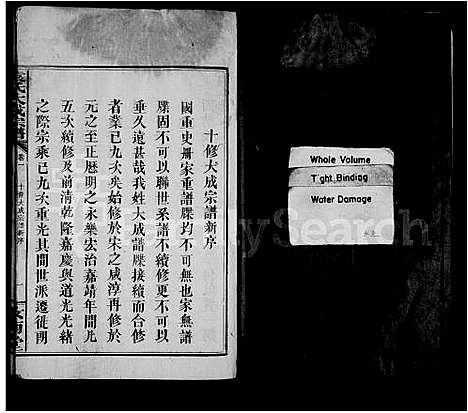 十修大成宗譜新序
國重史册家重譜牒均不可無也家無譜
牒固不可以聯世系譜不續修更不可以
垂久遠甚哉我姓大成譜牒接續而合修
者業已九次矣始修於宋之咸淳再修於
元之至正歷明之永樂宏治嘉靖年間凡
五次續修及前清乾隆嘉慶與道光光緒
之際宗乘已九次重光其間世派遷徙朗
大成宗譜
卷一
十修大成宗譜新序
一
Whole Volume
Tight Binding
Water Damage
Search